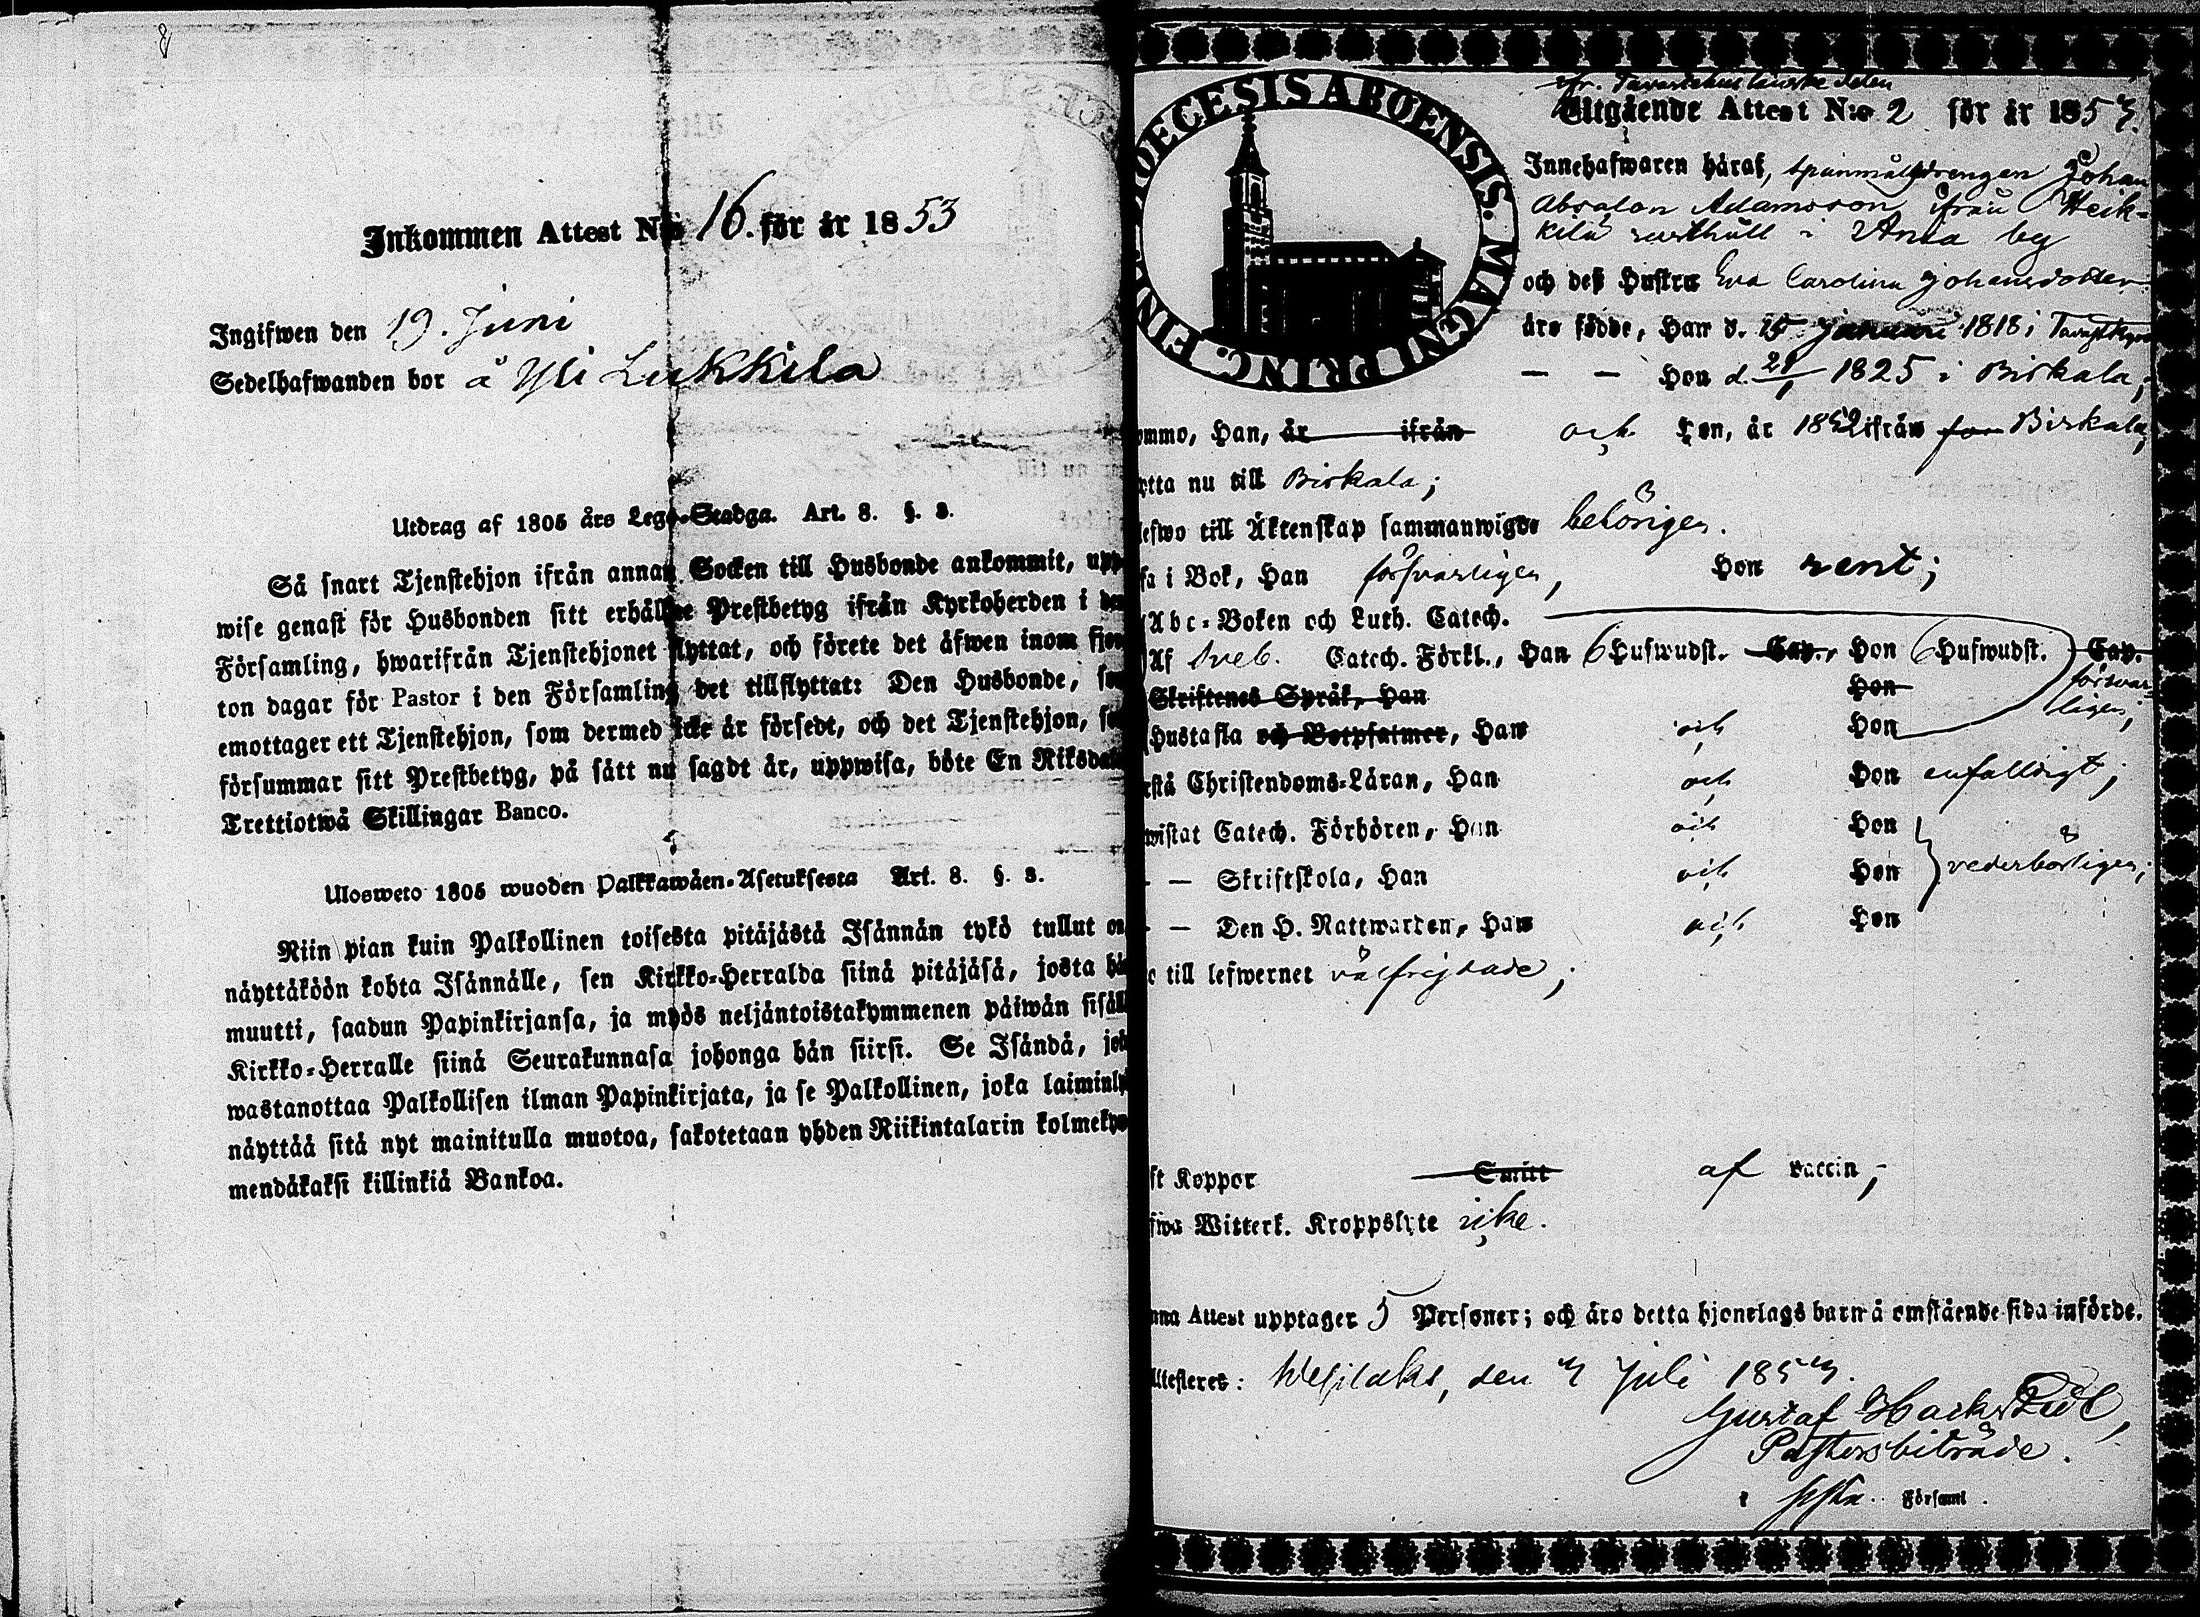 8
Inkommen Attest N:o 16. för år 1853
Ingifwen den 19. Juni
Sedelhafwanden bor å Yli Lukkila
Utdrag af 1805 års Lego-Stadga. Art. 8. §. 3.
Så snart Tjenstehjon ifrån annan Socken till Husbonde ankommit, upp
wise genast för Husbonden sitt erhållne Prestbetyg ifrån Kyrkoherden i den
Församling, hwarifrån Tjenstehjonet flyttat, och förete det äfwen inom fjor
ton dagar för Pastor i den Församling det tillflyttat: Den Husbonde, som
emottager ett Tjenstehjon, som dermed icke är försedt, och det Tjenstehjon, so
försummar sitt Prestbetyg, på sätt nu sagdt är, uppwisa, böte En Riksdal
Trettiotwå Skillingar Banco.
Ulosweto 1805 wuoden Palkkawäen-Asetuksesta Art. 8. §. 3.
Niin pian kuin Palkollinen toisesta pitäjästä Isännän tykö tullut on
näyttäköön kohta Isännälle, sen Kirkko-Herralda siinä pitäjäsä, josta hän
muutti, saadun Papinkirjansa, ja myös neljäntoistakymmenen päiwän sisäll
Kirkko-Herralle siinä Seurakunnasa johonga hän siirsi. Se Isändä, jok
wastanottaa Palkollisen ilman Papinkirjata, ja se Palkollinen, joka laiminly
näyttää sitä nyt mainitulla muotoa, sakotetaan yhden Riikintalarin kolmekym
mendäkaksi killinkiä Bankoa.
DIOECESIS ABOENSIS. MAGNI PRINC. FIN
fr. Tavastehuslänska delen
Utgående Attest N:o 2 för år 1853.
Innehafwaren häraf, spanmålsdrengen Johan
Absalon Adamsson ifrån Heik-
kilä rusthåll i Ania by
och deß Hustru Eva Carolina Johansdotter
äro födde, Han d. 15 januari 1818 i Tavastkyro
— — Hon d. 21/1 1825 i Birkala;
ommo, Han, år ifrån och Hon, år 1852 ifrån Birkala;
otta nu till Birkala;
lefwo till Äktenskap sammanwigde behörigen.
sa i Bok, Han försvarligen, Hon rent;
Abc-Boken och Luth. Catech.
Af Sveb. Catech. Förkl., Han 6 Hufwudst. Cap., Hon 6 Hufwudst. Cap.
Skriftenes Språk, Han Hon försvar-
ligen;
Hustafla och Botpsalmer, Han och Hon
rstå Christendoms-Läran, Han och Hon enfalldigt;
wistat Catech. Förhören, Han och Hon
— — Skriftskola, Han och Hon vederbörligen;
— — Den H. Nattwarden, Han och Hon
c till lefwernet välfrejdade;
ft Koppor Smitt af vaccin;
fwa Witterl. Kroppslyte icke.
nna Attest upptager 5 Personer; och äro detta hjonelags barn å omstående sida införde.
Attesteres: Wesilaks, den 3 Juli 1853.
Gustaf Hacksedt,
Pastorsbiträde.
i Förs:aml.